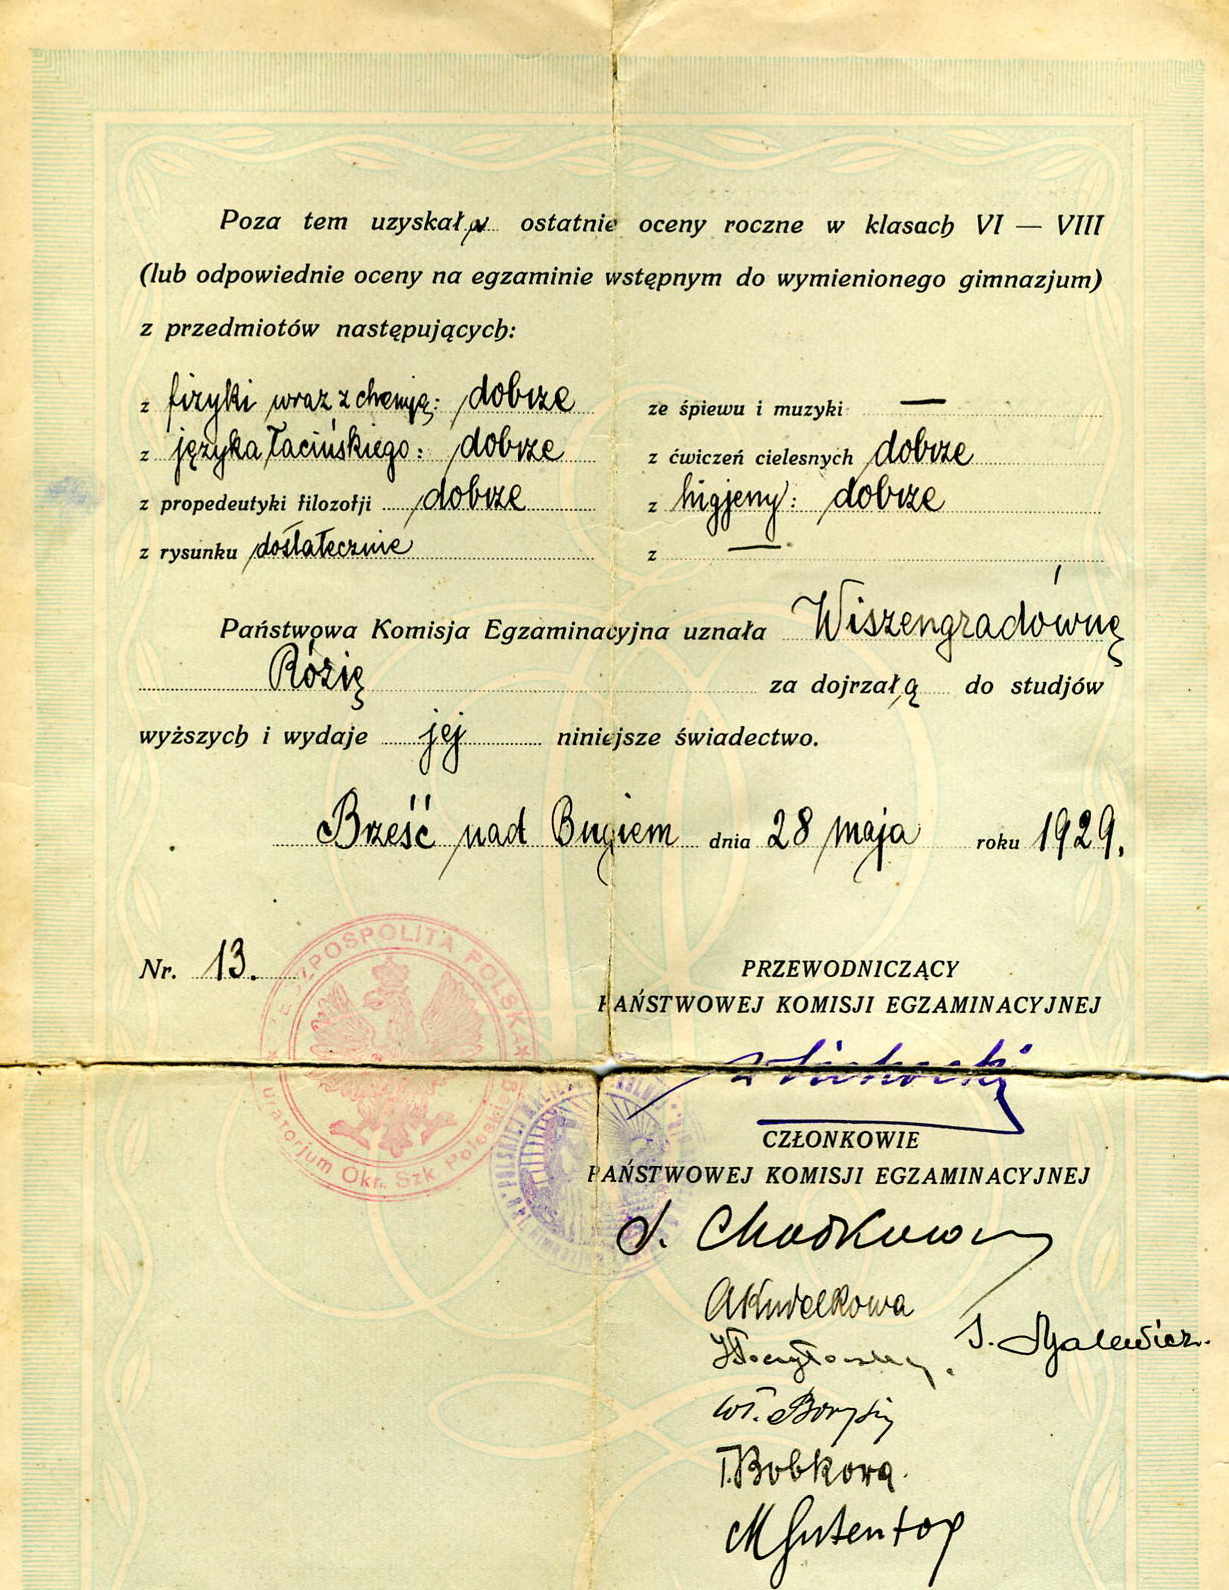 Poza tem uzyskała ostatnie oceny roczne w klasach VI — VIII
(lub odpowiednie oceny na egzaminie wstępnym do wymienionego gimnazjum)
z przedmiotów następujących:
z fizyki wraz z chemją: dobrze
ze śpiewu i muzyki —
z języka łacińskiego: dobrze
z ćwiczeń cielesnych dobrze
z propedeutyki filozofji dobrze
z higjeny: dobrze
z rysunku dostatecznie
z —
Państwowa Komisja Egzaminacyjna uznała Wiszengradównę
Rózię za dojrzałą do studjów
wyższych i wydaje jej niniejsze świadectwo.
Brześć nad Bugiem dnia 28 maja roku 1929.
Nr. 13.
RZECZPOSPOLITA POLSKA
Kuratorjum Okr. Szk. Poleskiego
PRZEWODNICZĄCY
PAŃSTWOWEJ KOMISJI EGZAMINACYJNEJ
CZŁONKOWIE
PAŃSTWOWEJ KOMISJI EGZAMINACYJNEJ
AKudelkowa
Wł. Borysin
T. Bobkova
M Gutentag